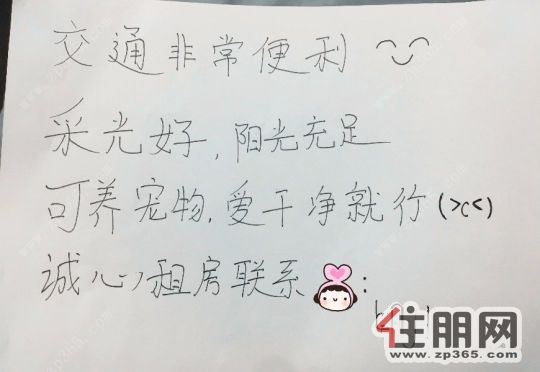 交通非常便利
采光好,阳光充足
可养宠物,爱干净就行(>c<)
诚心租房联系:
住朋网
www.zp365.com